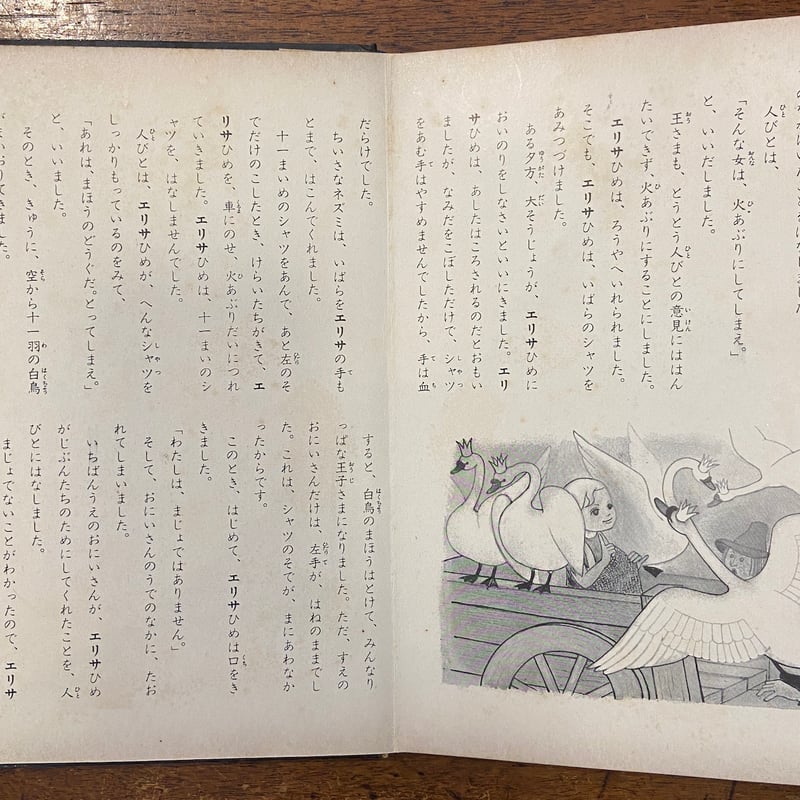 人びとは、
「そんな女は、火あぶりにしてしまえ。」
と、いいだしました。
王さまも、とうとう人びとの意見にはん
たいできず、火あぶりにすることにしました。
エリサひめは、ろうやへいれられました。
そこでも、エリサひめは、いばらのシャツを
あみつづけました。
ある夕方、大そうじょうが、エリサひめに
おいのりをしなさいといいにきました。エリ
サひめは、あしたはころされるのだとおもい
ましたが、なみだをこぼしただけで、シャツ
をあむ手はやすめませんでしたから、手は血
だらけでした。
ちいさなネズミは、いばらをエリサの手も
とまで、はこんでくれました。
十一まいめのシャツをあんで、あと左のそ
でだけのこしたとき、けらいたちがきて、エ
リサひめを、車にのせ、火あぶりだいにつれ
ていきました。エリサひめは、十一まいのシ
ャツを、はなしませんでした。
人びとは、エリサひめが、へんなシャツを
しっかりもっているのをみて、
「あれは、まほうのどうぐだ。とってしまえ。」
と、いいました。
そのとき、きゅうに、空から十一羽の白鳥
がまいおりてきました。
すると、白鳥のまほうはとけて、みんなり
っぱな王子さまになりました。ただ、すえの
おにいさんだけは、左手が、はねのままでし
た。これは、シャツのそでが、まにあわなか
ったからです。
このとき、はじめて、エリサひめは口をき
きました。
「わたしは、まじょではありません。」
そして、おにいさんのうでのなかに、たお
れてしまいました。
いちばんうえのおにいさんが、エリサひめ
がじぶんたちのためにしてくれたことを、人
びとにはなしました。
まじょでないことがわかったので、エリサ